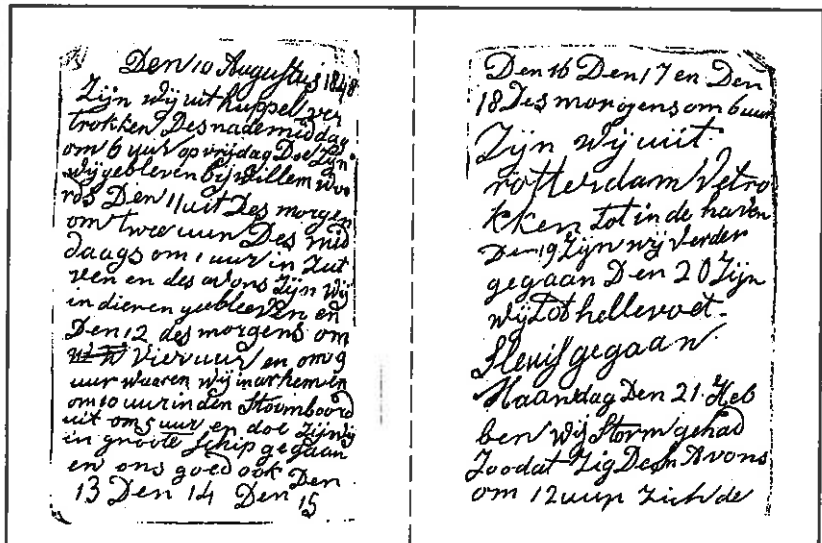 Den 10 Augustus 1848
Zijn wij uit huppel ver
trokken Des nademiddag
om 6 uur op vrijdag Doe Zijn
wij gebleven bij willem woo
rds Den 11 uit Des morgen
om twee uun Des mid
daags om 1 uur in Zut
ven en des avons Zijn wij
in dieren geebleeven en
Den 12 des morgens om
vier uur en om 9
uur waeren wij in arhem en
om 10 uur in den Stoomboord
uit om 5 uur en doe Zijn wij
in groote Schip gegaan
en ons goed ook Den
13 Den 14 Den 15
Den 16 Den 17 en Den
18 Des morgens om 6 uur
Zijn wij uit
rotterdam Vetro
kken tot in de haven
Den 19 Zijn wij Verder
gegaan Den 20 Zijn
wij tot hellevoet
Sleuis gegaan
Maandag Den 21 Heb
ben wij Storm gehad
Zoodat Zig Avons
om 12 uur Zich de